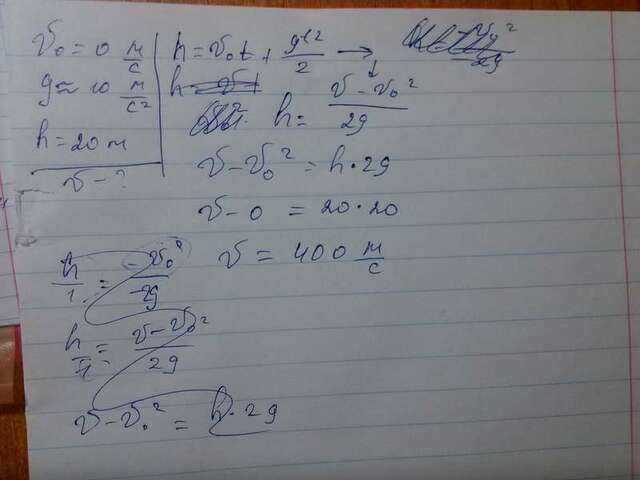 v₀ = 0 м/с
g ≈ 10 м/с²
h = 20 м
v - ?
h = v₀t + gt²/2 →
h = (v - v₀²)/2g
v - v₀² = h · 2g
v - 0 = 20 · 20
v = 400 м/с
h/1 =
h/1 = (v - v₀²)/2g
v - v₀² = h · 2g